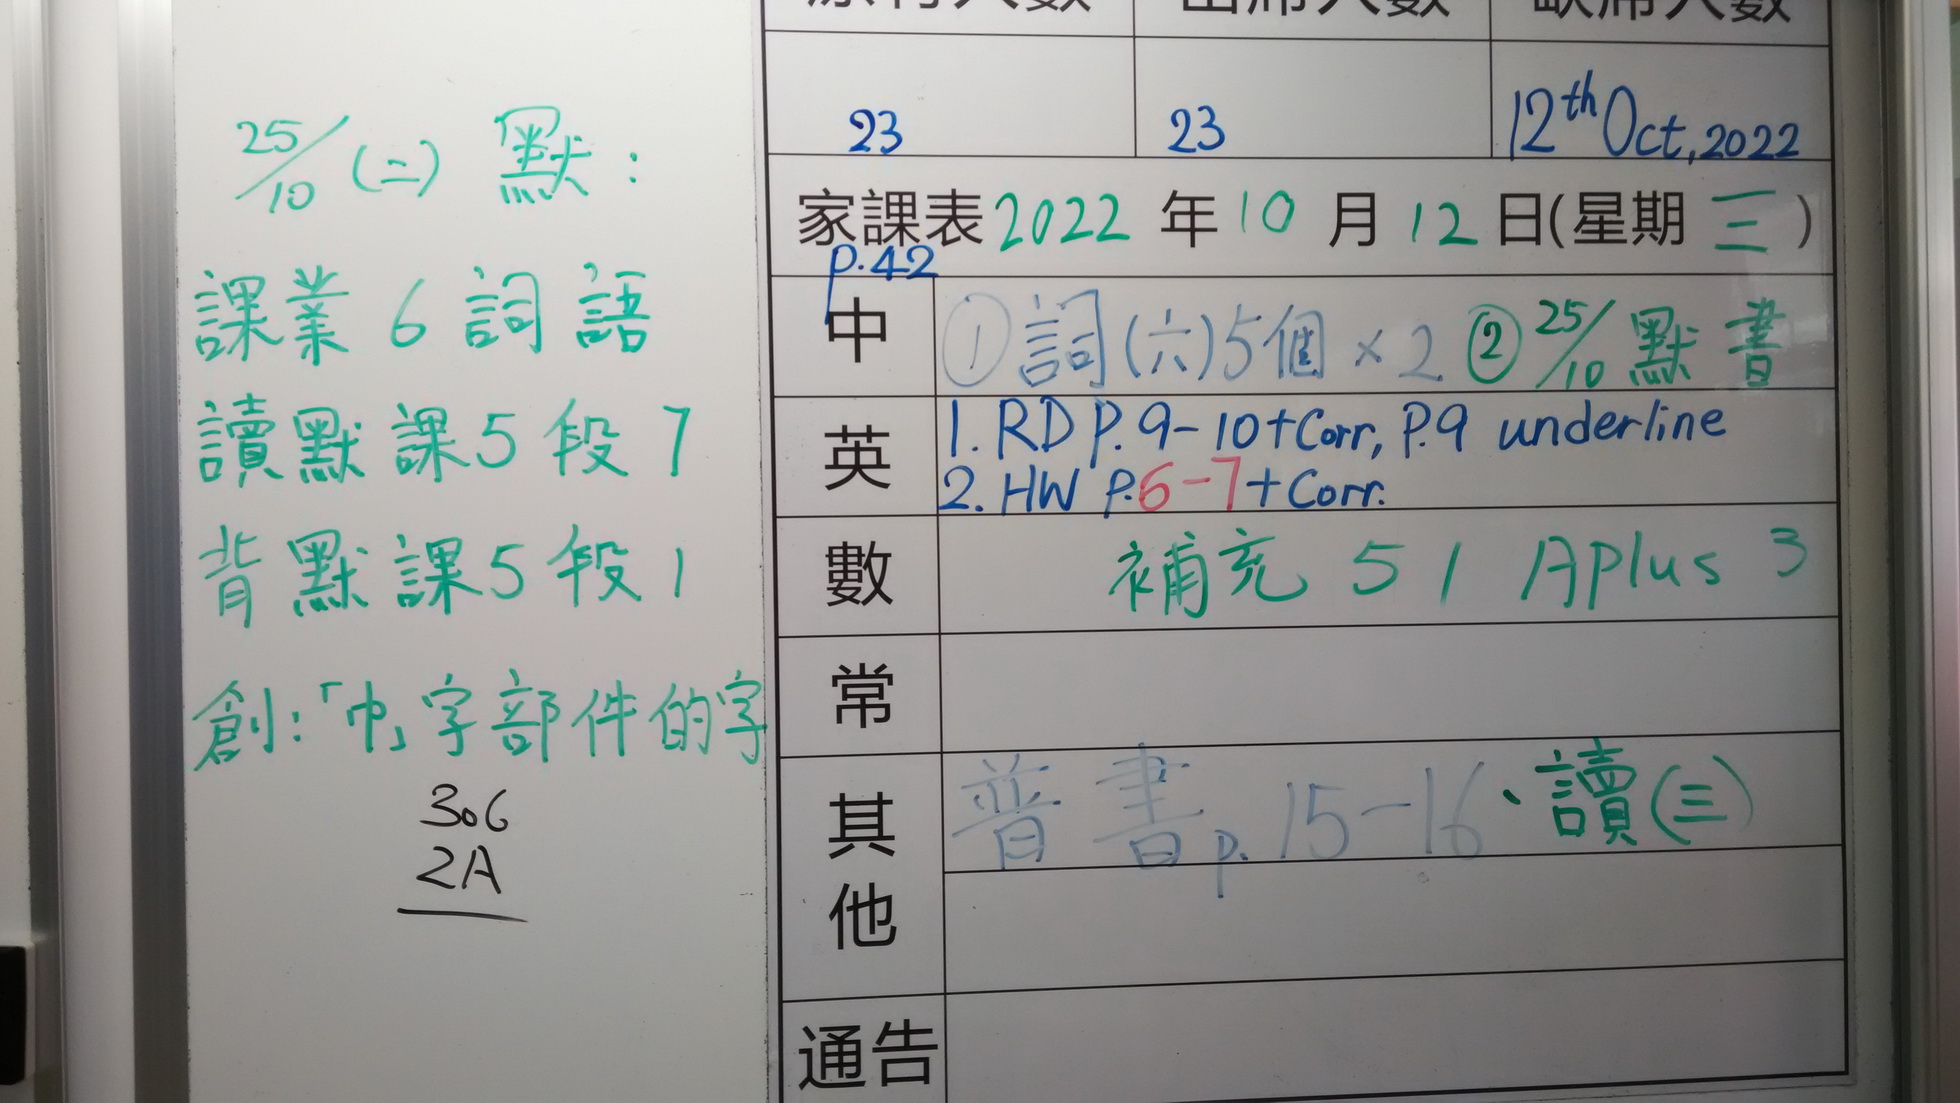 25/10 (二) 默:
課業 6 詞語
讀默課5段7
背默課5段1
創:「巾」字部件的字
306
2A
原有人數 出席人數 缺席人數
23 23 12th Oct, 2022
家課表2022年10月12日(星期三)
p.42
中 ①詞(六)5個×2 ②25/10默書
英 1. RD P.9-10+Corr, P.9 underline
2. HW P.6-7+Corr.
數 補充 51 APlus 3
常
其他 普書p.15-16、讀(三)
通告